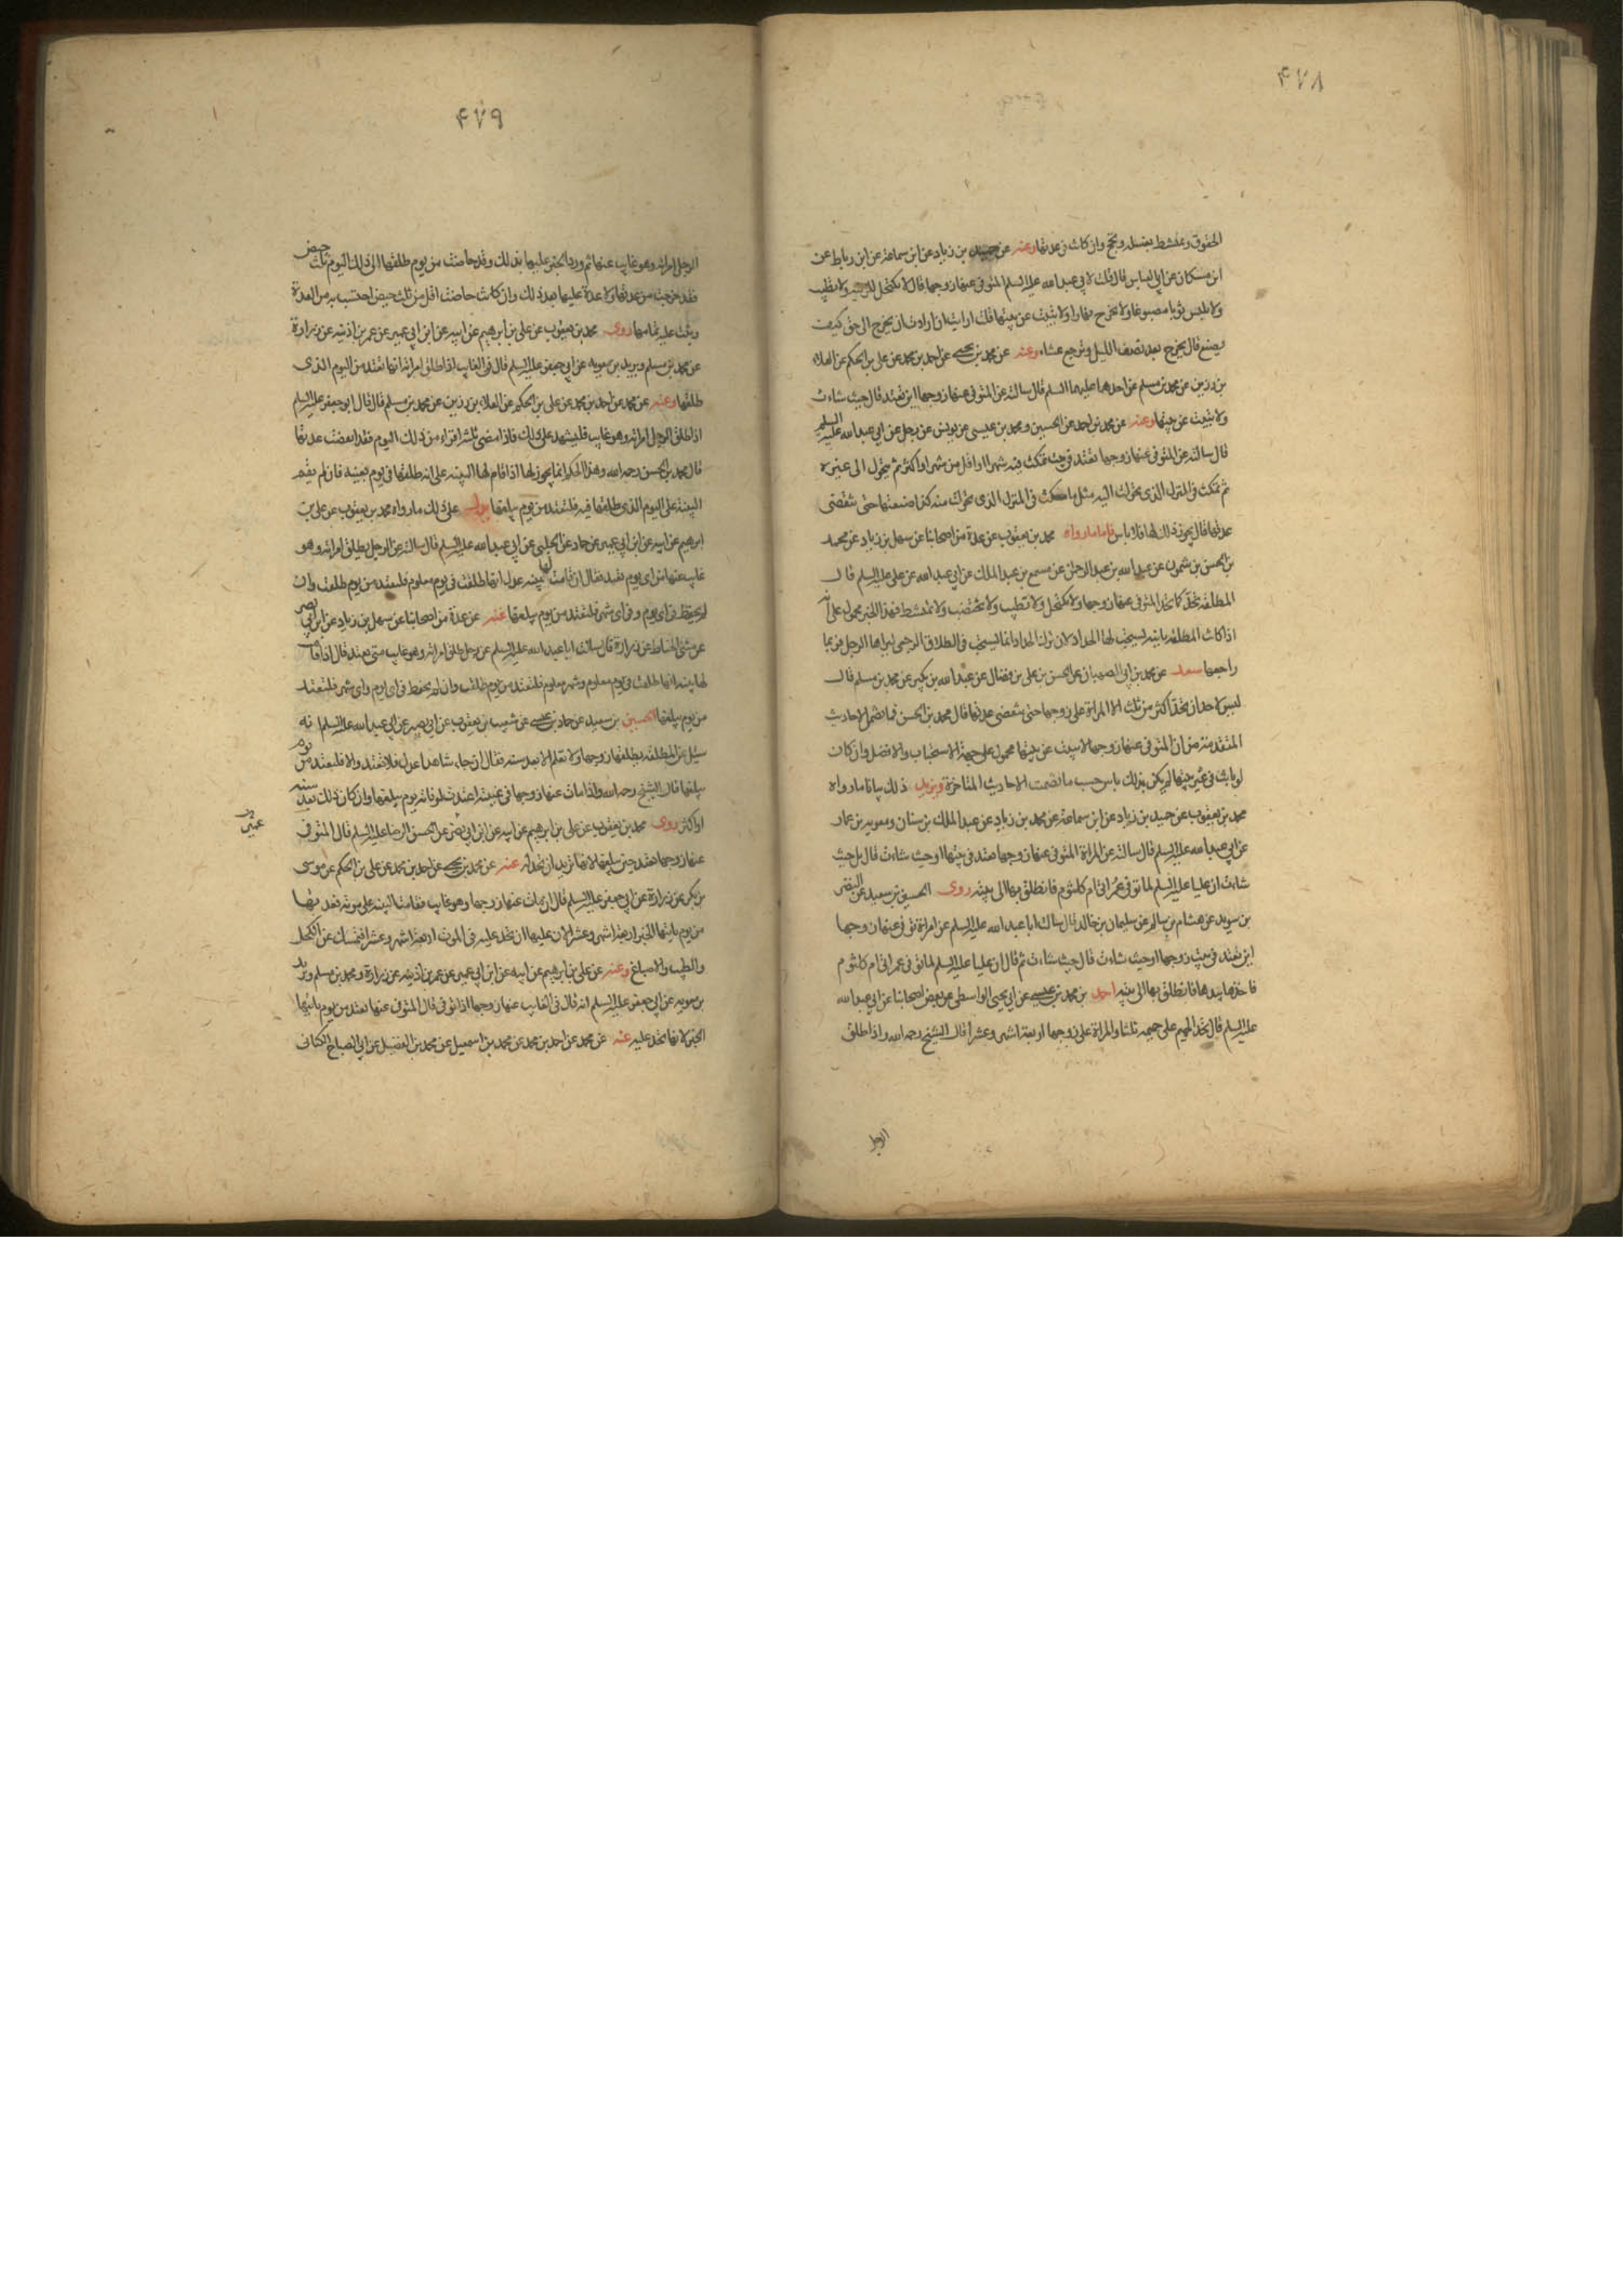 ٤٧٨
الحقوق وتمتشط بغسلة وتحج وان كانت فى عدتها وعنه عن حميد بن زياد عن ابن سماعة عن ابن رباط عن
ابن مسكان عن ابى العباس قال قلت لابى عبد الله عليه السلم المتوفى عنها زوجها قال لا تكتحل للزينة ولا تطيب
ولا تلبس ثوبا مصبوغا ولا تخرج نهارا ولا تبيت عن بيتها قلت ارايت ان ارادت ان تخرج الى حق كيف
تصنع قال تخرج بعد نصف الليل وترجع عشاء وعنه عن محمد بن يحيى عن احمد بن محمد عن على بن الحكم عن العلاء
بن رزين عن محمد بن مسلم عن احدهما عليهما السلم قال سالته عن المتوفى عنها زوجها اين تعتد قال حيث شاءت
ولا تبيت عن بيتها وعنه عن محمد بن احمد عن الحسين ومحمد بن عيسى عن يونس عن رجل عن ابى عبد الله عليه السلم
قال سالته عن المتوفى عنها زوجها تعتد فى بيت تمكث فيه شهرا او اقل من شهر او اكثر ثم تتحول الى غيره
ثم تمكث فى المنزل الذى تحولت اليه مثل ما مكثت فى المنزل الذى تحولت منه كذا صنيعها حتى تنقضى
عدتها قال يجوز ذلك لها فلا باس فاما ما رواه محمد بن يعقوب عن عدة من اصحابنا عن سهل بن زياد عن محمد
بن الحسن بن شمون عن عبد الله بن عبد الرحمن عن مسمع بن عبد الملك عن ابى عبد الله عن على عليه السلم قال
المطلقة تحد كما تحد المتوفى عنها زوجها ولا تكتحل ولا تطيب ولا تختضب ولا تمتشط فهذا الخبر محمول على انه
اذا كانت المطلقة باينة يستحب لها الحداد لان ترك الحداد انما يستحب فى الطلاق الرجعى ليراها الرجل فربما
راجعها سعد عن محمد بن ابى الصهبان عن الحسن بن على بن فضال عن عبد الله بن بكير عن محمد بن مسلم قال
ليس لاحد ان تحد اكثر من ثلث الا المراة على زوجها حتى تنقضى عدتها قال محمد بن الحسن فما تضمن الاحاديث
المتقدمة من ان المتوفى عنها زوجها لا تبيت عن بيتها محمول على جهة الاستحباب والافضل وان كان
لو باتت فى غير بيتها لم يكن بذلك باس حسب ما تضمنت الاحاديث المتاخرة ويزيد ذلك بيانا ما رواه
محمد بن يعقوب عن حميد بن زياد عن ابن سماعة عن محمد بن زياد عن عبد الملك بن سنان ومعوية بن عمار
عن ابى عبد الله عليه السلم قال سالته عن المراة المتوفى عنها زوجها تعتد فى بيتها او حيث شاءت قال بل حيث
شاءت ان عليا عليه السلم لما توفى عمر اتى ام كلثوم فانطلق بها الى بيته روى الحسين بن سعيد عن النضر
بن سويد عن هشام بن سالم عن سليمان بن خالد قال سالت ابا عبد الله عليه السلم عن امراة توفى عنها زوجها
اين تعتد فى بيت زوجها او حيث شاءت قال حيث شاءت ثم قال ان عليا عليه السلم لما توفى عمر اتى ام كلثوم
فاخذ بيدها فانطلق بها الى بيته احمد بن محمد بن عيسى عن ابى يحيى الواسطى عن بعض اصحابنا عن ابى عبد الله
عليه السلم قال تحد الحميم على حميمه ثلثا والمراة على زوجها اربعة اشهر وعشرا قال الشيخ رحمه الله واذا طلق
الرجل
٤٧٩
الرجل امراته وهو غايب عنها ثم ورد الخبر عليها بذلك وقد حاضت من يوم طلقها الى ذلك اليوم ثلث حيض
فقد خرجت من عدتها ولا عدة عليها بعد ذلك وان كانت حاضت اقل من ثلث حيض احتسب به من العدة
وبنت عليه تمامها روى محمد بن يعقوب عن على بن ابراهيم عن ابيه عن ابن ابى عمير عن عمر بن اذينة عن زرارة
عن محمد بن مسلم وبريد بن معوية عن ابى جعفر عليه السلم قال فى الغايب اذا طلق امراته انها تعتد من اليوم الذى
طلقها وعنه عن محمد عن احمد بن محمد عن على بن الحكم عن العلاء بن رزين عن محمد بن مسلم قال قال ابو جعفر عليه السلم
اذا طلق الرجل امراته وهو غايب فليشهد على ذلك فاذا مضى ثلثة اقراء من ذلك اليوم فقد انقضت عدتها
قال محمد بن الحسن رحمه الله وهذا الحكم انما يجوز لها اذا قام لها البينة على انه طلقها فى يوم بعينه فان لم يقم
البينة على اليوم الذى طلقها فيه فلتعتد من يوم يبلغها يدل على ذلك ما رواه محمد بن يعقوب عن على بن
ابرهيم عن ابيه عن ابن ابى عمير عن حماد عن الحلبى عن ابى عبد الله عليه السلم قال سالته عن الرجل يطلق امراته وهو
غايب عنها من اى يوم تعتد فقال ان قامت لها بينة عدل انها طلقت فى يوم معلوم فلتعتد من يوم طلقت وان
لم يحفظ فى اى يوم وفى اى شهر فلتعتد من يوم يبلغها عنه عن عدة من اصحابنا عن سهل بن زياد عن ابن ابى نصر
عن مثنى الحناط عن زرارة قال سالت ابا عبد الله عليه السلم عن رجل طلق امراته وهو غايب متى تعتد قال اذا قامت
لها بينة انها طلقت فى يوم معلوم وشهر معلوم فلتعتد من يوم طلقت وان لم يحفظ فى اى يوم واى شهر فلتعتد
من يوم يبلغها الحسين بن سعيد عن حماد بن عيسى عن شعيب بن يعقوب عن ابى بصير عن ابى عبد الله عليه السلم انه
سئل عن المطلقة يطلقها زوجها ولا تعلم الا بعد سنة فقال ان جاء شاهدا عدل فلا تعتد والا فلتعتد من يوم
يبلغها قال الشيخ رحمه الله واذا مات عنها زوجها فى غيبته اعتدت لوفاته يوم يبلغها وان كان ذلك بعد سنة
او اكثر روى محمد بن يعقوب عن على بن ابرهيم عن ابيه عن ابن ابى نصر عن الحسن الرضا عليه السلم قال المتوفى
عنها زوجها تعتد حين يبلغها لانها تريد ان تحد له عنه عن محمد بن يحيى عن احمد بن محمد عن على بن الحكم عن موسى
بن بكر عن زرارة عن ابى جعفر عليه السلم قال ان مات عنها زوجها وهو غايب فقامت البينة على موته فعدتها
من يوم ياتيها الخبر اربعة اشهر وعشرا لان عليها ان تحد عليه فى الموت اربعة اشهر وعشرا فتمسك عن الكحل
والطيب والاصباغ وعنه عن على بن ابرهيم عن ابيه عن ابن ابى عمير عن عمر بن اذينة عن زرارة ومحمد بن مسلم وبريد
بن معوية عن ابى جعفر عليه السلم انه قال فى الغايب عنها زوجها اذا توفى قال المتوفى عنها تعتد من يوم ياتيها
الخبر لانها تحد عليه عنه عن محمد عن احمد بن محمد عن محمد بن اسمعيل عن محمد بن الفضيل عن ابى الصباح الكنانى